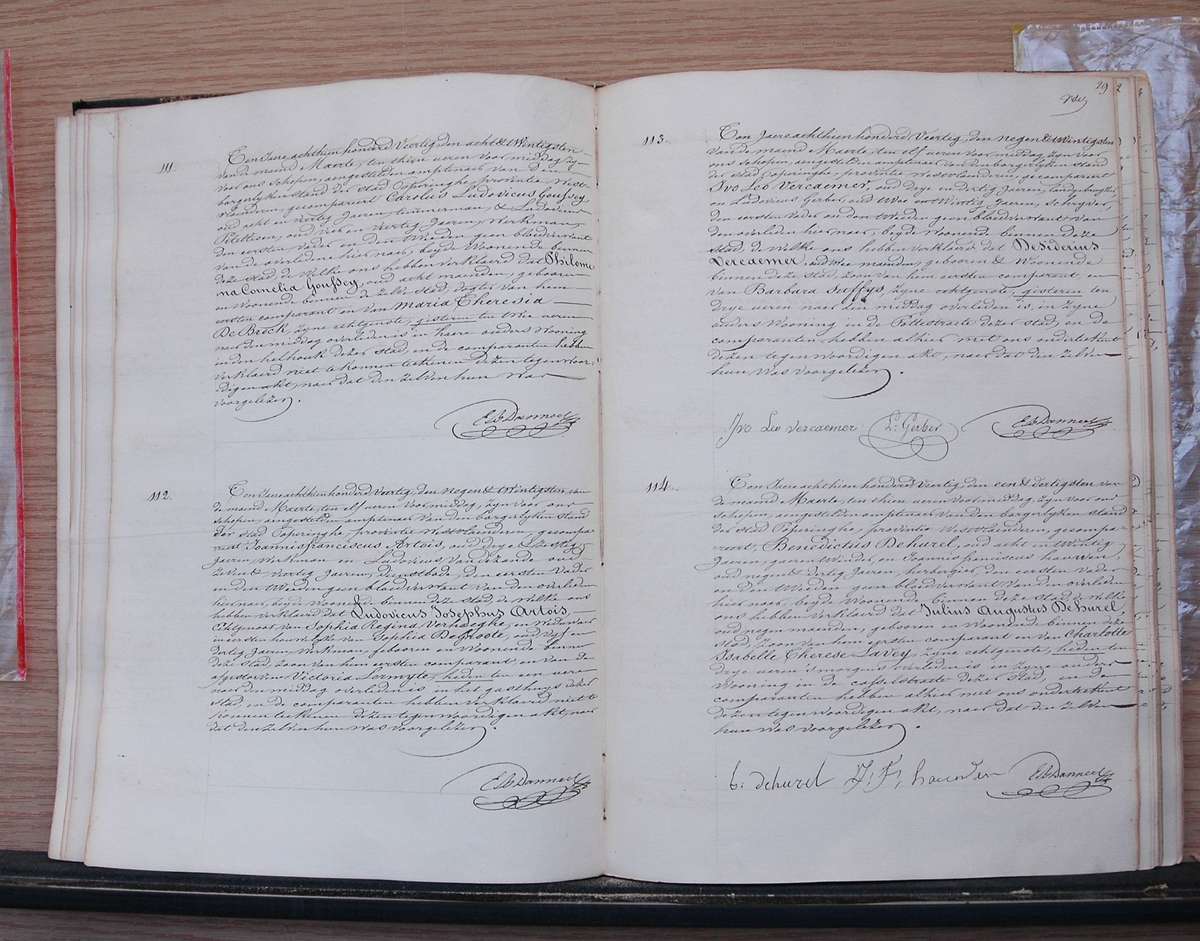 111.
Ten Jare achthien honderd Veertig, den acht & twintigsten
van de maand Maerte, ten thien uren voor middag, zyn
voor ons schepen, aengestelden amptenaer van den
borgerlyken stand der stad Poperinghe, provintie West
vlaenderen, gecompareert Carolus Ludovicus Goussey
oud acht en Veertig Jaeren, timmerman, & Ludovicus
oud vier en Veertig Jaeren, Werkman,
den eersten vader en den tweeden geen bloedverwant
van de overledene hier naer, beyde Woonende binnen
deze stad de Welke ons hebben verklaerd dat Philome
na Cornelia Goussey, oud acht maenden, geboren en
Woonende binnen de zelve stad, dogter van hem
eersten comparant en van Maria Theresia
De Brock zyne echtgenote, gisteren ten twee uren
naer den middag overleden is in haere ouders Wooning
in den helhouk dezer stad, en de comparanten hebben
verklaerd niet te konnen teekenen dezen tegenwoor-
digen akt, naer dat den zelven hun was
voorgelezen.
112.
Ten Jare achthien honderd Veertig, den negen & twintigsten van
de maand Maerte, ten elf uren voor middag, zyn voor ons
schepen, aengestelden amptenaer van den borgerlyken stand
der stad Poperinghe, provintie Westvlaenderen, gecompa
reert Joannis franciscus Artois, oud
Jaeren, Werkman en Ludovicus oud
zeven & Veertig Jaeren, den eersten vader
en den tweeden geen bloedverwant van den overleden
hier naer, beyde Woonende binnen deze stad de Welke ons
hebben verklaerd dat Ludovicus Josephus Artois,
Echtgenoot van Sophia Regina Verhaeghe, en Weduwaer
in eersten houwelyke van Sophia De Groote, oud vyf en
dertig Jaeren, Werkman, geboren en Woonende binnen
deze stad, zoon van hem eersten comparant, en van de
afgestorven Victoria heden ten een uren
naer den middag overleden is in het gasthuys dezer
stad en de comparanten hebben verklaerd niet te
konnen teekenen dezen tegenwoordigen akt, naer
dat den zelven hun Was voorgelezen.
29
113.
Ten Jaere achthien honderd Veertig, den negen & twintigsten
van de maand Maerte, ten elf uren voor middag zyn voor
ons schepen, aengestelden amptenaer van den borgerlyken stand
der stad Poperinghe, provintie Westvlaenderen, gecompareert
Ivo Leo Vercaemer, oud drye en dertig Jaeren,
en Ludovicus Gerber, oud twee en twintig Jaeren, Schryver,
den eersten vader en den tweeden geen bloedverwant van
den overleden hier naer, beyde Woonende binnen deze
stad, de Welke ons hebben verklaerd dat Desiderius
Vercaemer, oud twee maenden, geboren & Woonende
binnen deze stad, zoon van hem eersten comparant, en
van Barbara zyne echtgenote, gisteren ten
drye uren naer den middag overleden is, in zyne
ouders Wooning in de Pottestraete dezer stad, en de
comparanten hebben alhier met ons onderteekent
dezen tegenwoordigen akt, naer dat den zelven
hun Was voorgelezen.
Ivo Leo Vercaemer L. Gerber
114.
Ten Jaere achthien honderd Veertig, den een & dertigsten van
de maand Maerte, ten thien uren voor middag, zyn voor ons
schepen, aengestelden amptenaer van den borgerlyken stand
der stad Poperinghe, provintie Westvlaenderen, gecompa
reert, Benedictus Dehurel, oud acht en twintig
Jaeren, en Joannis franciscus
oud negen & dertig Jaeren, herbergier, den eersten vader
en den tweeden geen bloedverwant van den overleden
hier naer, beyde Woonende binnen deze stad, de Welke
ons hebben verklaerd dat Julius Augustus Dehurel,
oud negen maenden, geboren en Woonende binnen deze
stad, zoon van hem eersten comparant en van Charlotte
Isabelle Therese Lavey, zyne echtgenote, heden ten
drye uren smorgens overleden is in zyne ouders
Wooning in de casselstraete dezer stad, en de
comparanten hebben alhier met ons onderteekent
dezen tegenwoordigen akt, naer dat den zelven
hun Was voorgelezen.
b: dehurel J: F,